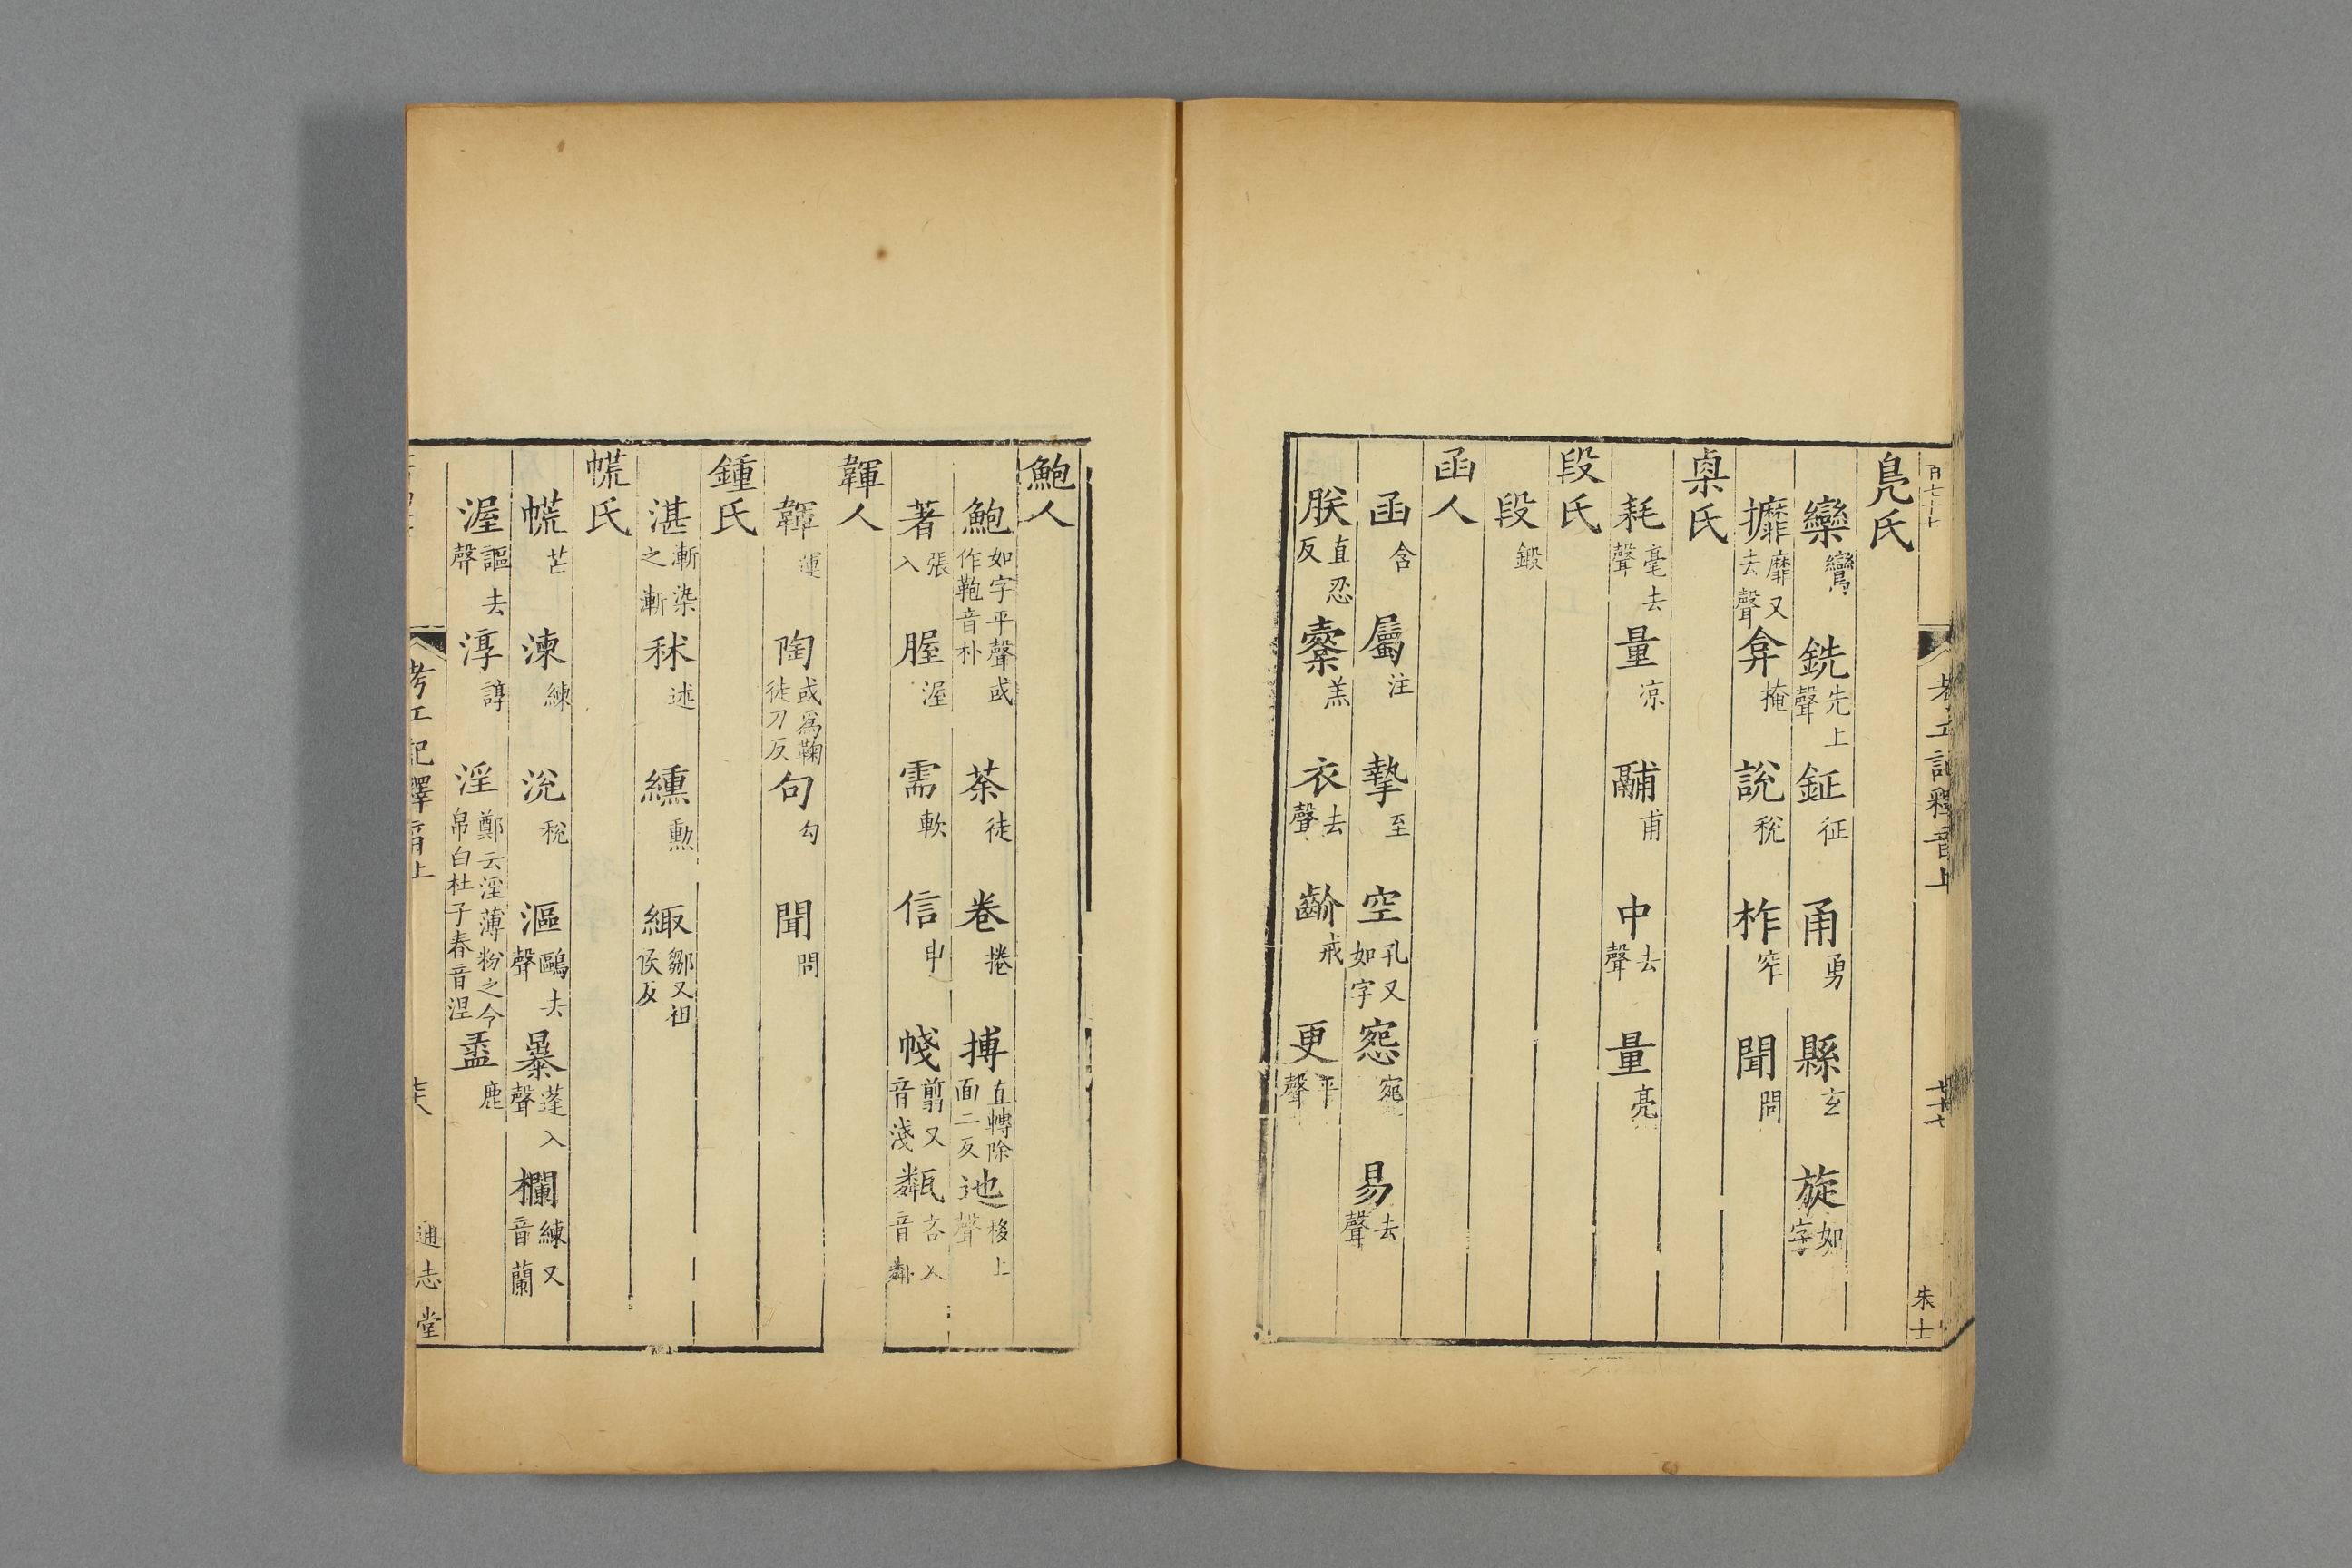 鳧氏
欒鸞 銑先上聲 鉦征 甬勇 縣玄 旋如字
㩢靡又去聲 弇掩 說稅 柞窄 聞問
㮚氏
耗毫去聲 量凉 鬴甫 中去聲 量亮
段氏
段鍛
函人
函含 屬注 摯至 空孔又如字 惌宛 易去聲
朕直忍反 櫜羔 衣去聲 齘戒 更平聲
考工記釋音上
朱士
鮑人
鮑如字平聲或作鞄音朴 荼徒 卷捲 搏直轉除面二反 迆移上聲
著張入 腥渥 需軟 信申 帴翦又音淺 甐
韗人
韗運 陶或爲鞠徒刀反 句勾 聞問
鍾氏
湛漸染之漸 秫述 纁勳 緅鄒又祖侯反
㡛氏
㡛芒 湅練 涚稅 漚鷗去聲 暴蓬入聲 欄練又音蘭
渥謳去聲 淳諄 淫鄭云淫薄粉之令帛白杜子春音涅 盝鹿
考工記釋音上
通志堂